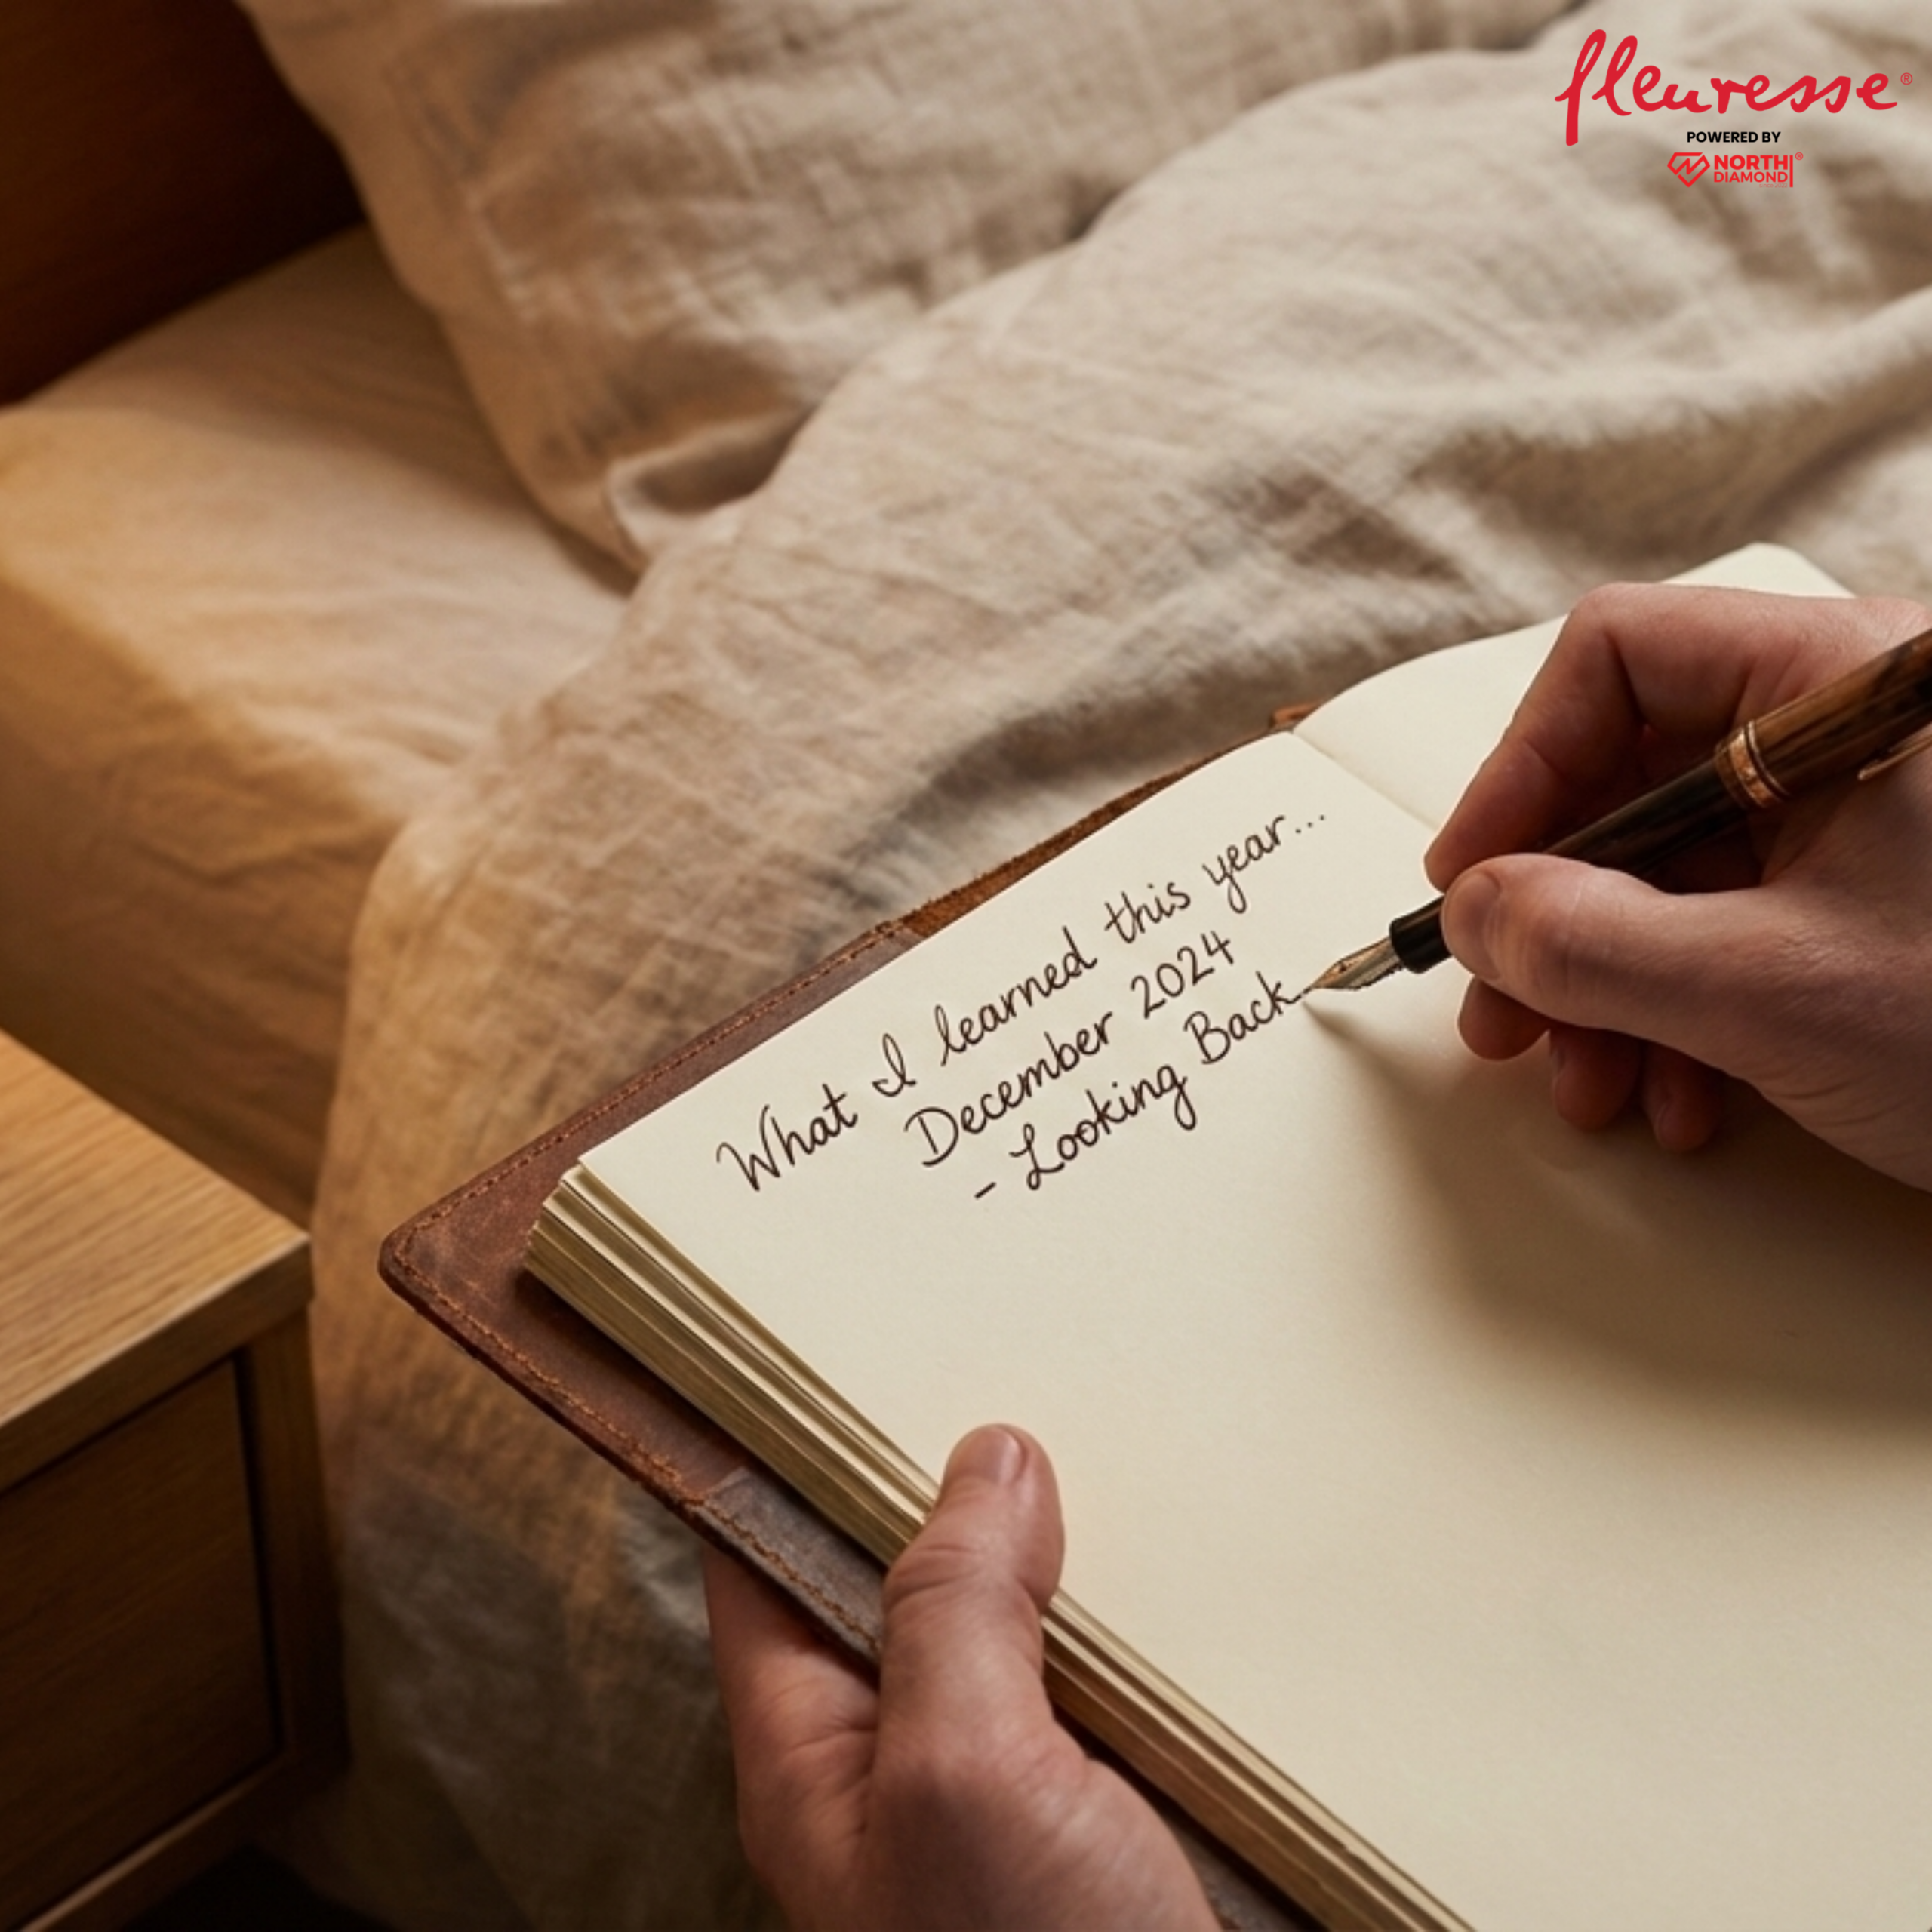 fleuresse®
POWERED BY
NORTH®
DIAMOND
What I learned this year...
December 2024
- Looking Back